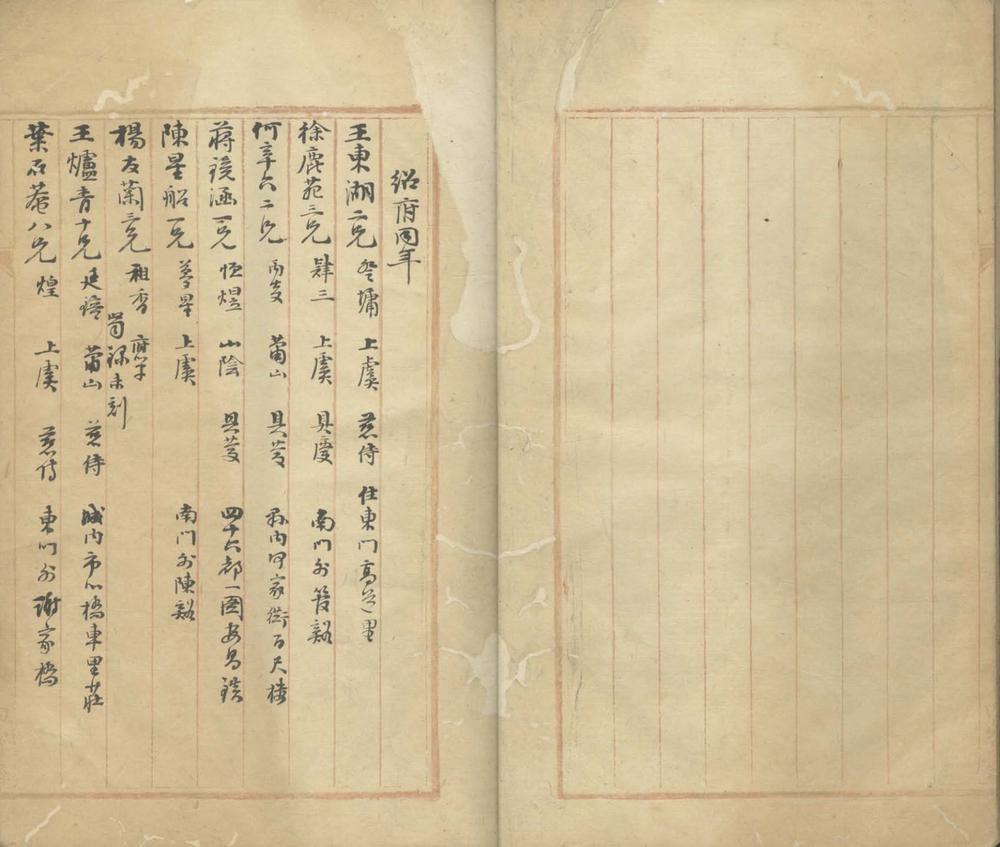 紹府同年
王東湖二兄 登墉 上虞 慈侍 住東門高道里
徐鹿苑三兄 肆三 上虞 具慶 南門外管谿
何辛六二兄 丙 蕭山 具慶 縣內何家衖百尺樓
蔣鏡涵一兄 恒煜 山陰 具慶 四十六都一圖安昌鎮
陳星船一兄 夢星 上虞 南門外陳谿
楊友蘭三兄 祖香 府學
首 未刻
王爐青十兄 廷 蕭山 慈侍 城內市心橋車里莊
葉石菴八兄 煌 上虞 慈侍 東門外謝家橋